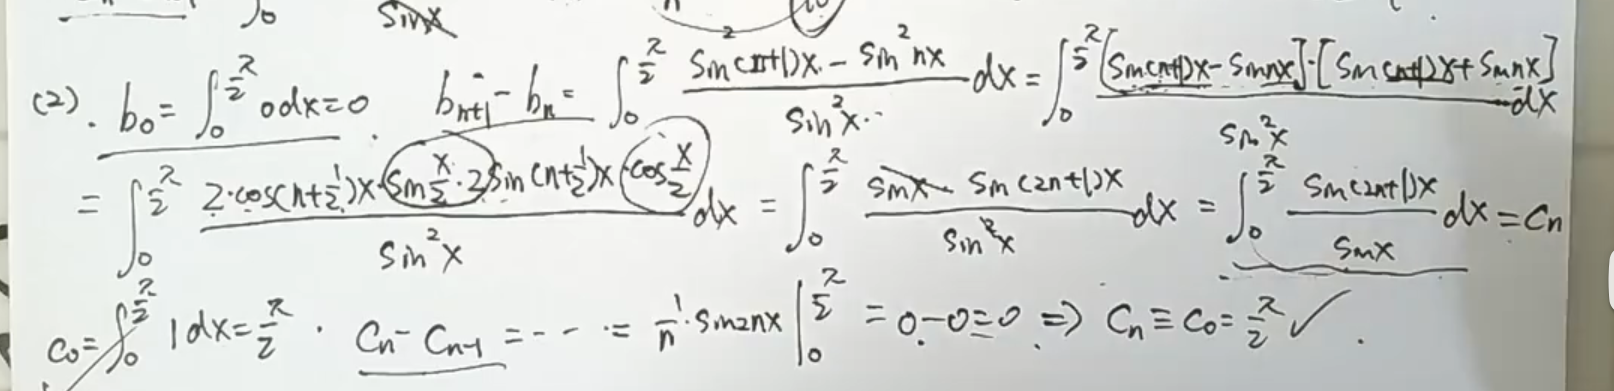 ∫₀ sinx
(2). b₀ = ∫₀^{π/2} 0dx = 0 . b_{n+1} - b_n = ∫₀^{π/2} (sin²(n+1)x - sin²nx)/(sin²x) dx = ∫₀^{π/2} ([sin(n+1)x - sinnx]·[sin(n+1)x + sinnx])/(sin²x) dx
= ∫₀^{π/2} (2·cos(n+½)x·sin(x/2)·2sin(n+½)x·cos(x/2))/(sin²x) dx = ∫₀^{π/2} (sinx·sin(2n+1)x)/(sin²x) dx = ∫₀^{π/2} (sin(2n+1)x)/(sinx) dx = Cn
C₀ = ∫₀^{π/2} 1dx = π/2 . Cn - C_{n-1} = - - - = (1/n)·sin2nx |₀^{π/2} = 0-0=0 ⇒ Cn ≡ C₀ = π/2 ✓ .